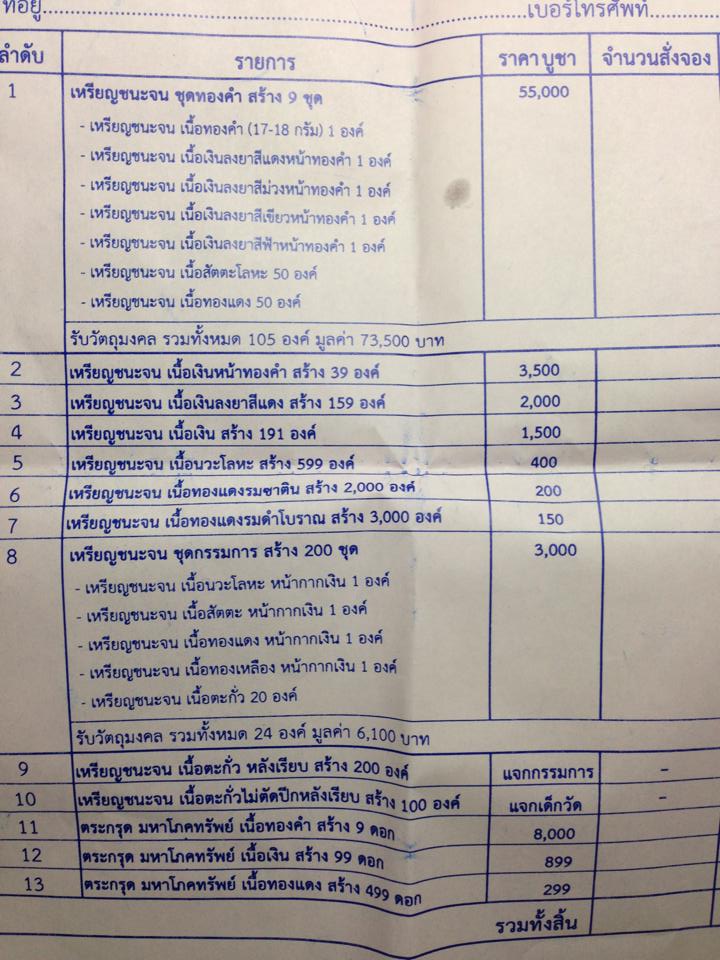 ที่อยู่..............................................................เบอร์โทรศัพท์....................
ลำดับ รายการ ราคาบูชา จำนวนสั่งจอง
1 เหรียญชนะจน ชุดทองคำ สร้าง 9 ชุด 55,000
- เหรียญชนะจน เนื้อทองคำ (17-18 กรัม) 1 องค์
- เหรียญชนะจน เนื้อเงินลงยาสีแดงหน้าทองคำ 1 องค์
- เหรียญชนะจน เนื้อเงินลงยาสีม่วงหน้าทองคำ 1 องค์
- เหรียญชนะจน เนื้อเงินลงยาสีเขียวหน้าทองคำ 1 องค์
- เหรียญชนะจน เนื้อเงินลงยาสีฟ้าหน้าทองคำ 1 องค์
- เหรียญชนะจน เนื้อสัตตะโลหะ 50 องค์
- เหรียญชนะจน เนื้อทองแดง 50 องค์
รับวัตถุมงคล รวมทั้งหมด 105 องค์ มูลค่า 73,500 บาท
2 เหรียญชนะจน เนื้อเงินหน้าทองคำ สร้าง 39 องค์ 3,500
3 เหรียญชนะจน เนื้อเงินลงยาสีแดง สร้าง 159 องค์ 2,000
4 เหรียญชนะจน เนื้อเงิน สร้าง 191 องค์ 1,500
5 เหรียญชนะจน เนื้อนวะโลหะ สร้าง 599 องค์ 400
6 เหรียญชนะจน เนื้อทองแดงรมซาติน สร้าง 2,000 องค์ 200
7 เหรียญชนะจน เนื้อทองแดงรมดำโบราณ สร้าง 3,000 องค์ 150
8 เหรียญชนะจน ชุดกรรมการ สร้าง 200 ชุด 3,000
- เหรียญชนะจน เนื้อนวะโลหะ หน้ากากเงิน 1 องค์
- เหรียญชนะจน เนื้อสัตตะ หน้ากากเงิน 1 องค์
- เหรียญชนะจน เนื้อทองแดง หน้ากากเงิน 1 องค์
- เหรียญชนะจน เนื้อทองเหลือง หน้ากากเงิน 1 องค์
- เหรียญชนะจน เนื้อตะกั่ว 20 องค์
รับวัตถุมงคล รวมทั้งหมด 24 องค์ มูลค่า 6,100 บาท
9 เหรียญชนะจน เนื้อตะกั่ว หลังเรียบ สร้าง 200 องค์ แจกกรรมการ -
10 เหรียญชนะจน เนื้อตะกั่วไม่ตัดปีกหลังเรียบ สร้าง 100 องค์ แจกเด็กวัด -
11 ตระกรุด มหาโภคทรัพย์ เนื้อทองคำ สร้าง 9 ดอก 8,000
12 ตระกรุด มหาโภคทรัพย์ เนื้อเงิน สร้าง 99 ดอก 899
13 ตระกรุด มหาโภคทรัพย์ เนื้อทองแดง สร้าง 499 ดอก 299
รวมทั้งสิ้น